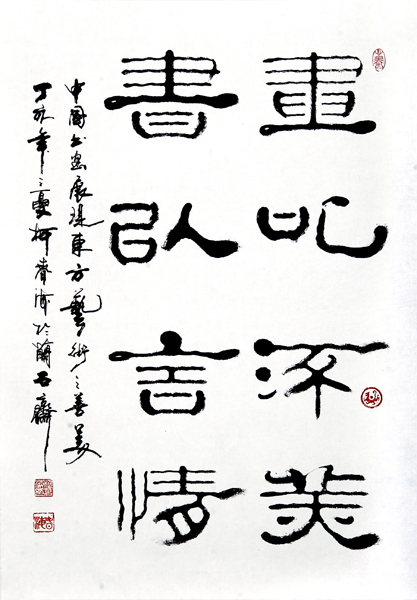 畫以美
書以言情
中國书画展現東方藝術之善美
丁亥年之夏柯春海於蘭石齋